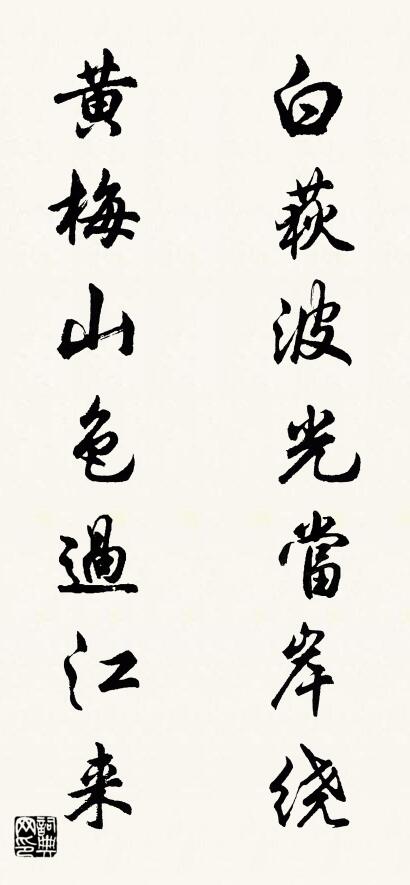 白荻波光當岸绕
黄梅山色過江来
詞典网印